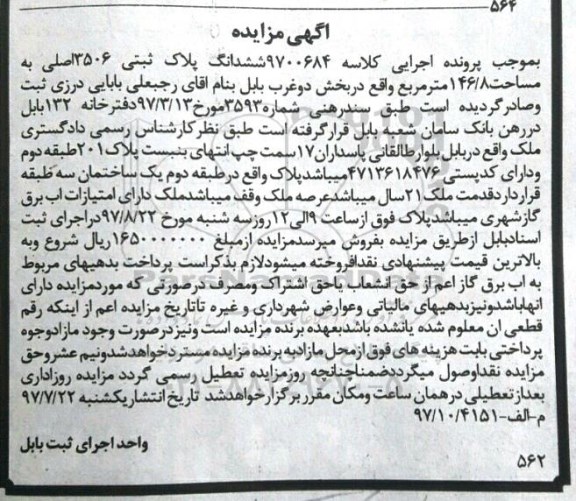 ۵۶۴
آگهی مزایده
بموجب پرونده اجرایی کلاسه ۹۷۰۰۶۸۴ششدانگ پلاک ثبتی ۳۵۰۶اصلی به
مساحت۱۴۶/۸مترمربع واقع دربخش دوغرب بابل بنام اقای رجبعلی بابایی درزی ثبت
وصادرگردیده است طبق سندرهنی شماره۳۵۹۳مورخ۹۷/۳/۱۳دفترخانه ۱۳۲بابل
دررهن بانک سامان شعبا بابل قرارگرفته است طبق نظرکارشناس رسمی دادگستری
ملک واقع دربابل بلوارطالقانی پاسداران۱۷سمت چپ انتهای بنبست پلاک۲۰۱طبقه دوم
ودارای کدپستی۴۷۱۳۶۱۸۴۷۶میباشدپلاک واقع درطبقه دوم یک ساختمان سه طبقه
قرارداردقدمت ملک۲۱سال میباشدعرصه ملک وقف میباشدملک دارای امتیازات اب برق
گازشهری میباشدپلاک فوق ازساعت ۹الی۱۲روزسه شنبه مورخ ۹۷/۸/۲۲دراجرای ثبت
اسنادبابل ازطریق مزایده بفروش میرسدمزایده ازمبلغ ۱۶۵۰۰۰۰۰۰۰ریال شروع وبه
بالاترین قیمت پیشنهادی نقدافروخته میشودلازم بذکراست پرداخت بدهیهای مربوط
به اب برق گاز اعم از حق انشعاب یاحق اشتراک ومصرف درصورتی که موردمزایده دارای
انهاباشدونیزبدهیهای مالیاتی وعوارض شهرداری و غیره تاتاریخ مزایده اعم از اینکه رقم
قطعی ان معلوم شده یانشده باشدبعهده برنده مزایده است ونیزدرصورت وجود مازادوجوه
پرداختی بابت هزینه های فوق ازمحل مازادبه برنده مزایده مستردخواهدشدونیم عشروحق
مزایده نقداوصول میگرددضمناچنانچه روزمزایده تعطیل رسمی گردد مزایده روزاداری
بعدازتعطیلی درهمان ساعت ومکان مقرربرگزارخواهدشد تاریخ انتشاریکشنبه ۹۷/۷/۲۲
م-الف-۹۷/۱۰/۴۱۵۱
واحد اجرای ثبت بابل
۵۶۲